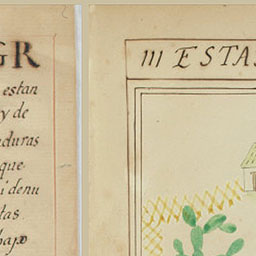 GR
estan
y de
duras
que
i denu
tas
bajo
III ESTA